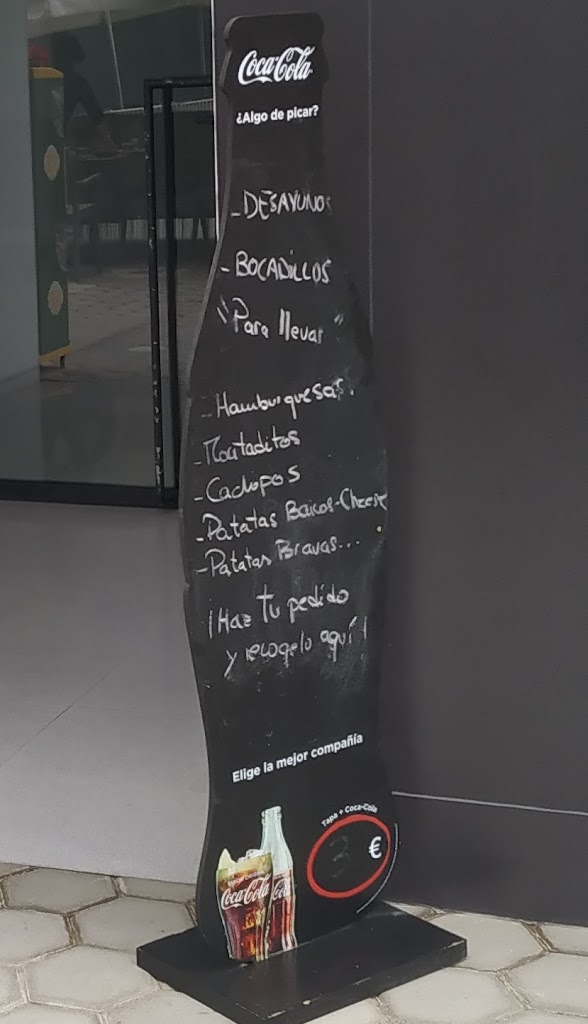 Coca-Cola
¿Algo de picar?
-DESAYUNOS
-BOCADILLOS
"Para llevar"
-Hamburguesas.
-Montaditos
-Cachopos
-Patatas Baicos-Cheese
-Patatas Bravas...
¡Haz tu pedido
y recogelo aquí!
Elige la mejor compañía
Tapa + Coca-Cola
3 €
Coca-Cola
Coca